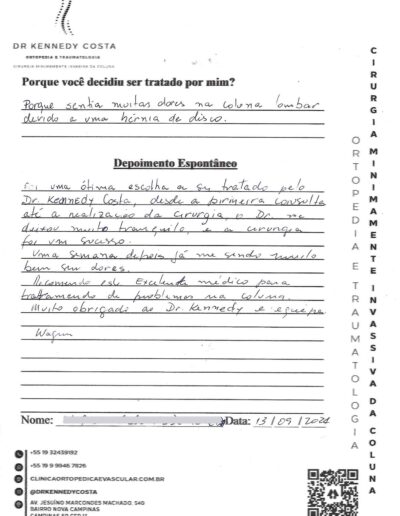 DR KENNEDY COSTA
ORTOPEDIA E TRAUMATOLOGIA
CIRURGIA MINIMAMENTE INVASIVA DA COLUNA
Porque você decidiu ser tratado por mim?
Porque sentia muitas dores na coluna lombar
devido a uma hérnia de disco.
Depoimento Espontâneo
uma ótima escolha a ser tratado pelo
Dr. Kennedy Costa, desde a primeira consulta
até a realização da cirurgia, o Dr. me
deixou muito tranquilo, e a cirurgia
foi um sucesso.
Uma semana depois já me sendo muito
bem sem dores.
Recomendo este Excelente médico para
tratamendo de problemas na coluna.
Muito obrigado ao Dr. Kennedy e equipe.
Wagner
Nome: Data: 13/09/2021
+55 19 32439192
+55 19 9 9946 7826
CLINICAORTOPEDICAEVASCULAR.COM.BR
@DRKENNEDYCOSTA
AV. JESUÍNO MARCONDES MACHADO, 540
BAIRRO NOVA CAMPINAS
ORTOPEDIA E TRAUMATOLOGIA
CIRURGIA MINIMAMENTE INVASSIVA DA COLUNA